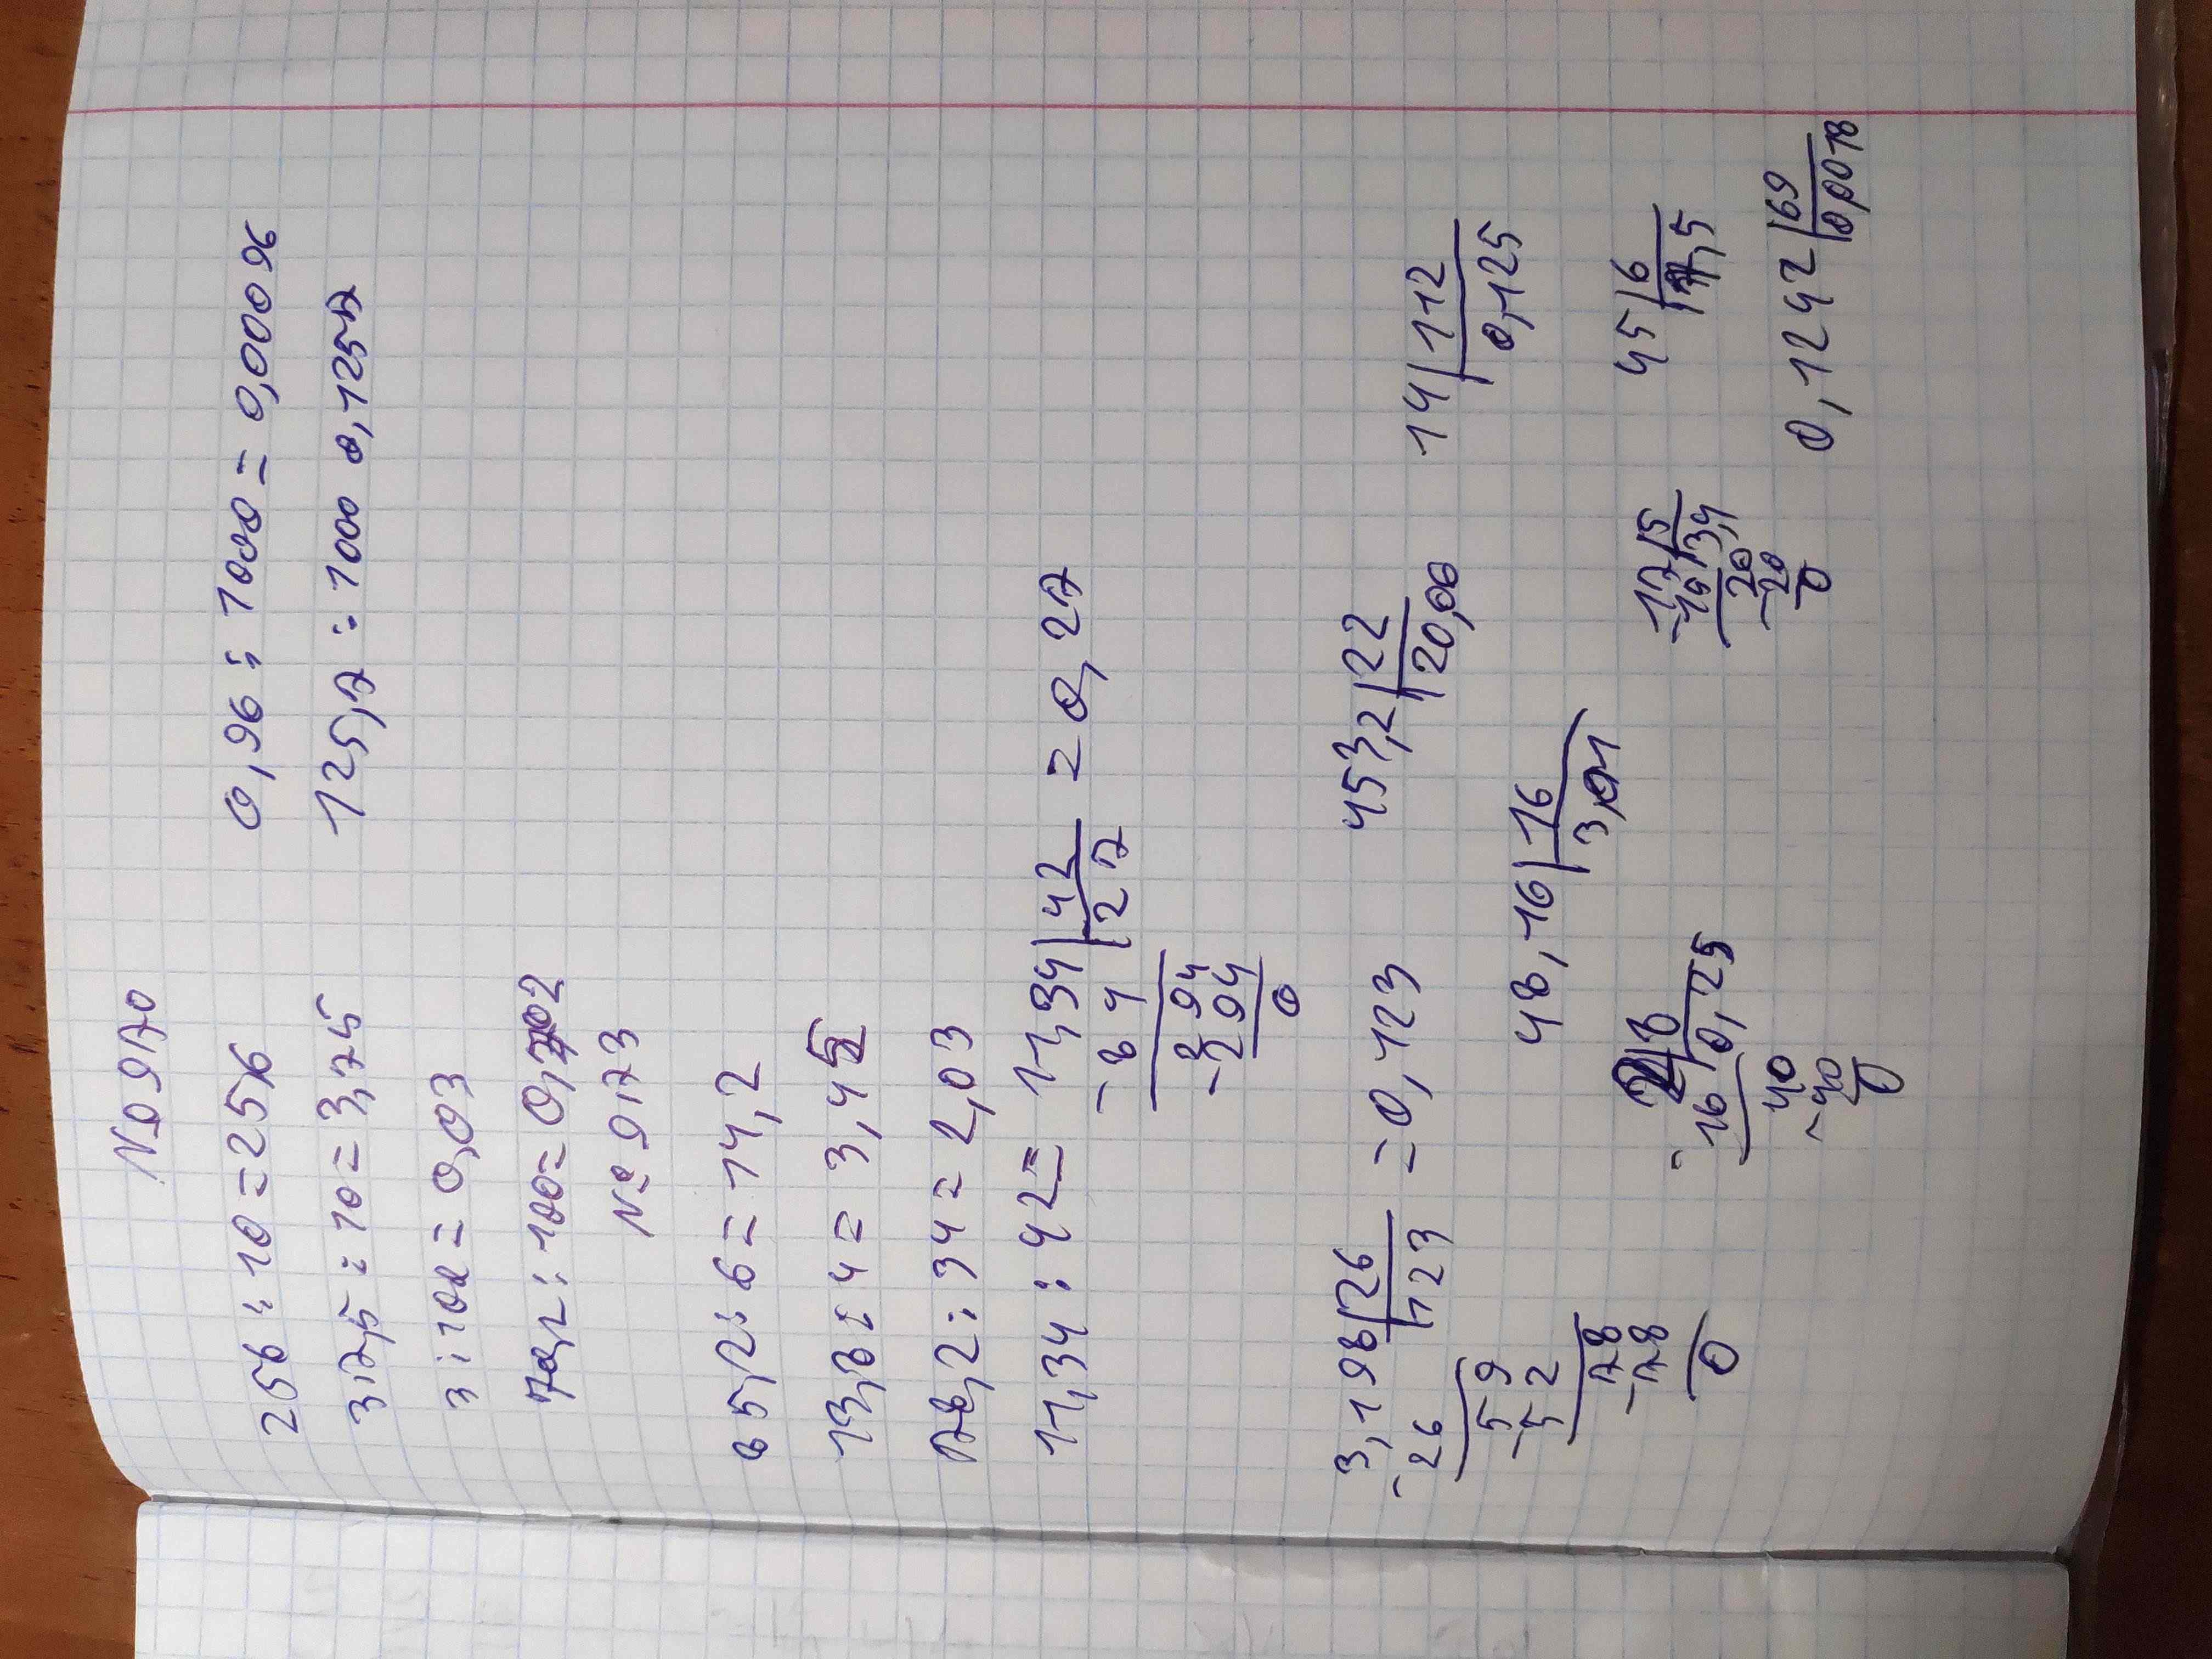 № 970
256 : 10 = 25,6
37,5 : 10 = 3,75
3 : 100 = 0,03
: 100 = 0,702
0,96 : 1000 = 0,00096
125,7 : 1000 0,1257
№ 973
85,2 : 6 = 14,2
13,8 : 4 = 3,45
: 34 = 2,03
11,34 : 42 = 11,34 | 42 = 0,27
- 8 4 | 27
- 2 94
2 94
0
3,198 | 26 = 0,123
- 26 | 123
59
- 52
78
- 78
0
453,2 | 22
20,06
14 | 112
0,125
48,16 | 16
3,01
2 | 8
- 16 | 0,25
40
- 40
0
17 | 5
- 16 | 3,4
20
- 20
0
45 | 6
7,5
0,1242 | 69
0,0018